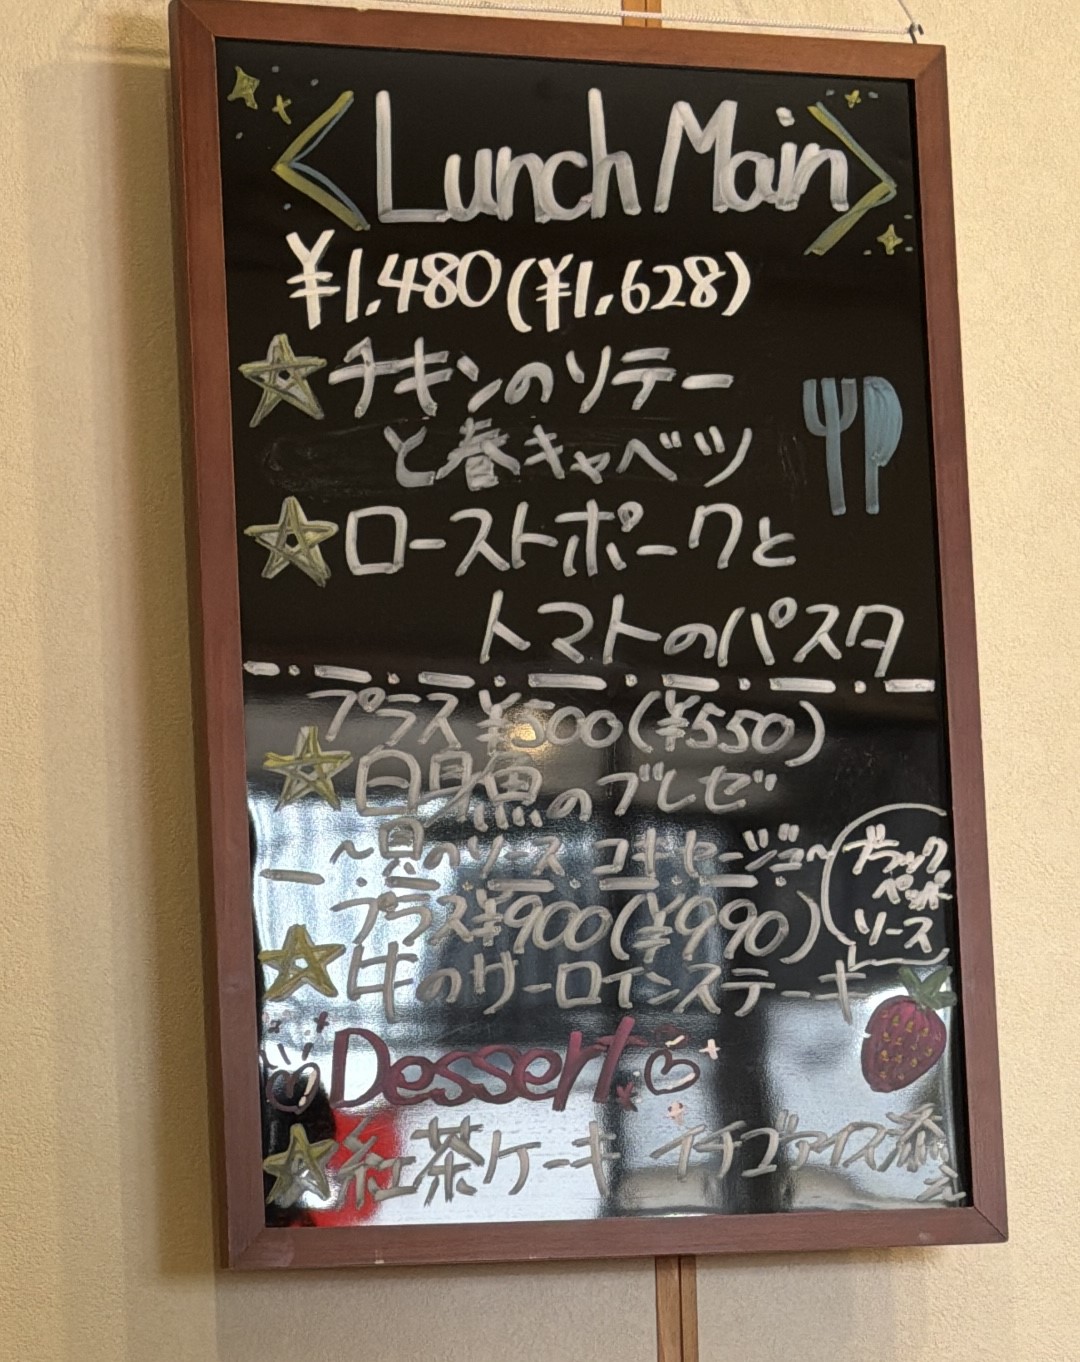 <Lunch Main>
¥1.480(¥1.628)
☆チキンのソテー
と春キャベツ
☆ローストポークと
トマトのパスタ
プラス¥500(¥550)
☆白身魚のブレゼ
のソース コキヤージュ~
プラス¥900(¥990)
☆牛のサーロインステーキ
ブラック
ペッパー
ソース
Dessert
☆紅茶ケーキ イチゴアイス添
え